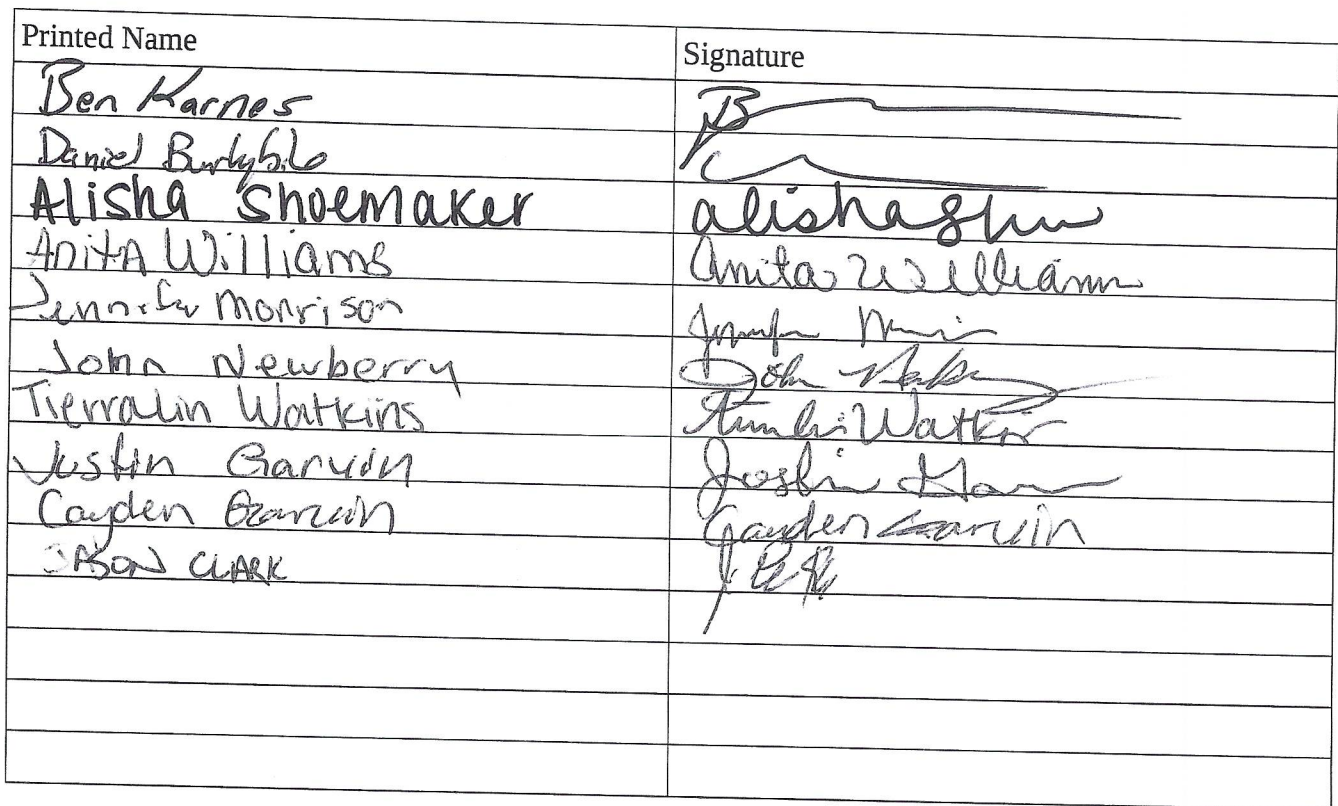 Printed Name Signature
Ben Karnes
Daniel
Alisha Shoemaker alishashu
Anita Williams Anita Williams
Jennifer Morrison
John Newberry John
Tierralin Watkins Watkins
Justin Garvin Justin
Cayden Garvin Cayden Garvin
JASON CLARK